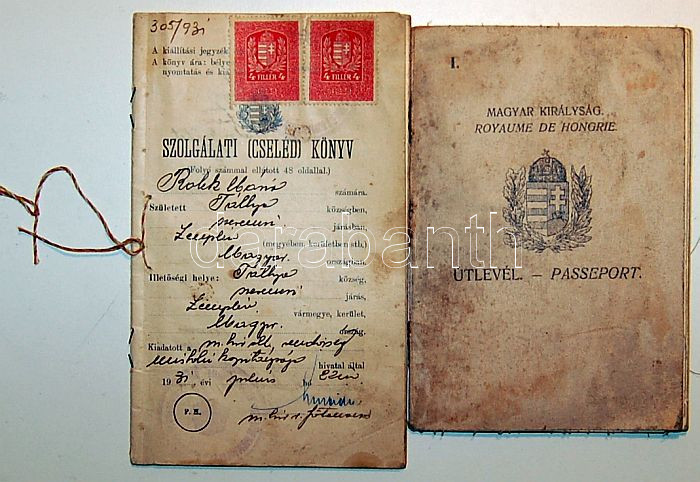 305/931
A kiállítási jegyzék
A könyv ára: bélye
nyomtatás és kiá
4 FILLÉR 4
4 FILLÉR 4
SZOLGÁLATI (CSELÉD) KÖNYV
(Folyó számmal ellátott 48 oldallal.)
számára.
Született Tállya községben,
szerencsi járásban,
Zemplén (megyében, kerületben stb.)
Magyar országban.
Illetőségi helye: Tállya község,
szerencsi járás,
Zemplén vármegye, kerület,
Magyar ország.
Kiadatott a m. kir. áll. rendőrség
miskolci kapitánysága hivatal által
1931 évi július hó
P. H.
I.
MAGYAR KIRÁLYSÁG.
ROYAUME DE HONGRIE.
ÚTLEVÉL. – PASSEPORT.
darabanth